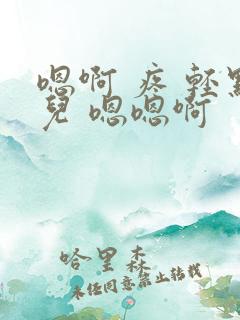 嗯啊 疼 轻點
兒 嗯嗯啊
哈里森
未经同意禁止转载